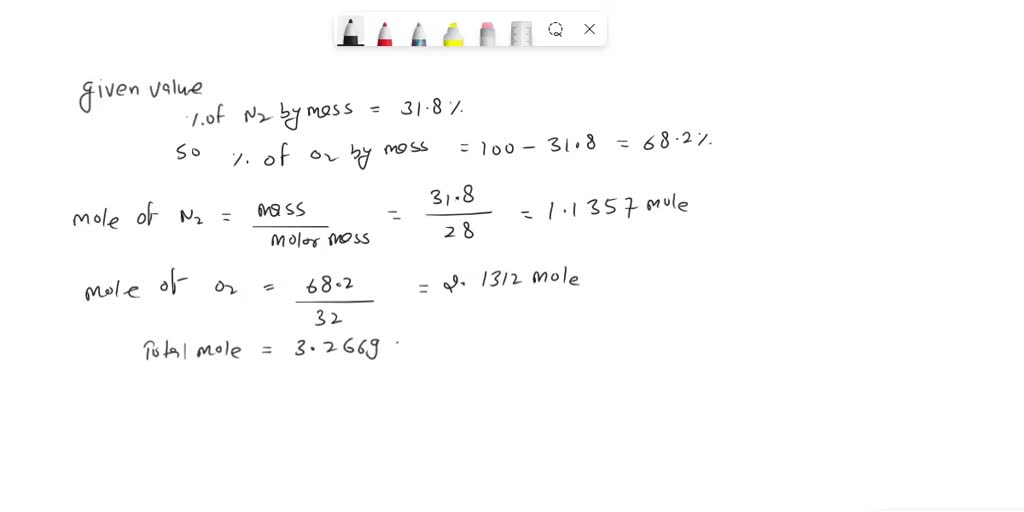 given value
% of N2 by mass = 31.8%
So % of O2 by mass = 100 - 31.8 = 68.2%
mole of N2 = mass / molar mass = 31.8 / 28 = 1.1357 mole
mole of O2 = 68.2 / 32 = 2.1312 mole
Total mole = 3.2669